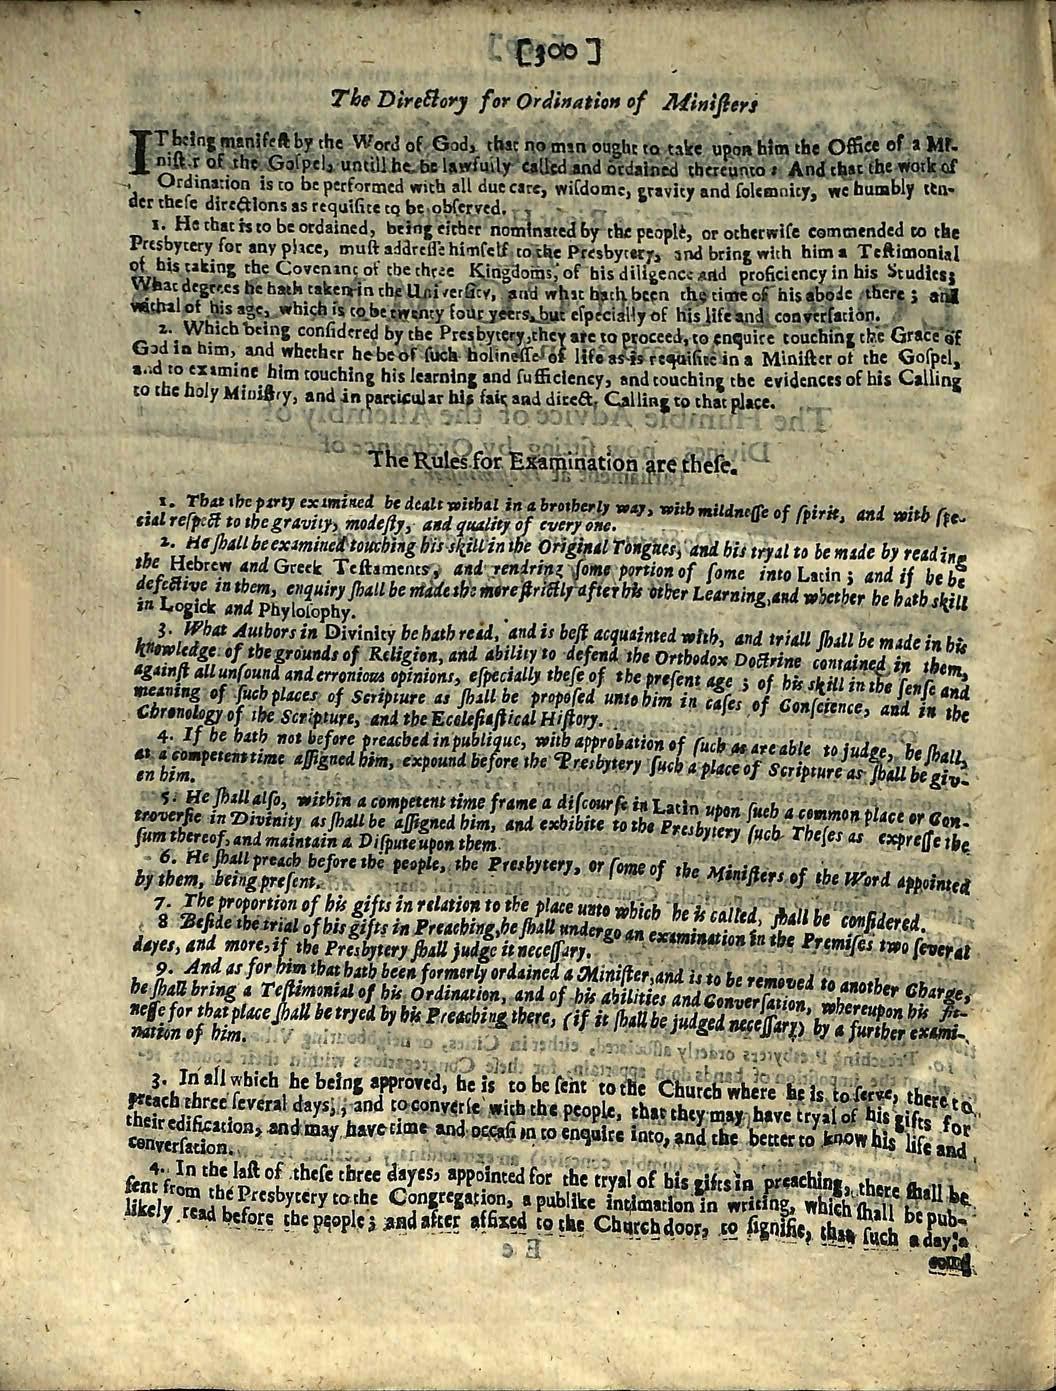 [300]
The Directory for Ordination of Miniſters
IT being manifeſt by the Word of God, that no man ought to take upon him the Office of a Mi-
niſter of the Goſpel, untill he be lawfully called and ordained thereunto: And that the work of
Ordination is to be performed with all due care, wiſdome, gravity and ſolemnity, we humbly ten-
der theſe directions as requiſite to be obſerved.
1. He that is to be ordained, being either nominated by the people, or otherwiſe commended to the
Presbytery for any place, muſt addreſſe himſelf to the Presbytery, and bring with him a Teſtimonial
of his taking the Covenant of the three Kingdoms, of his diligence and proficiency in his Studies;
What degrees he hath taken in the Univerſity, and what hath been the time of his abode there; and
withal of his age, which is to be twenty four years, but eſpecially of his life and converſation.
2. Which being conſidered by the Presbytery, they are to proceed, to enquire touching the Grace of
God in him, and whether he be of ſuch holineſſe of life as is requiſite in a Miniſter of the Goſpel,
and to examine him touching his learning and ſufficiency, and touching the evidences of his Calling
to the holy Miniſtry, and in particular his fair and direct Calling to that place.
The Rules for Examination are theſe.
1. That the party examined be dealt withal in a brotherly way, with mildneſſe of ſpirit, and with ſpe-
cial reſpect to the gravity, modeſty, and quality of every one.
2. He ſhall be examined touching his skill in the Original Tongues, and his tryal to be made by reading
the Hebrew and Greek Teſtaments, and rendring ſome portion of ſome into Latin; and if he be
defective in them, enquiry ſhall be made the more ſtrictly after his other Learning, and whether he hath skill
in Logick and Phyloſophy.
3. What Authors in Divinity he hath read, and is beſt acquainted with, and triall ſhall be made in his
knowledge of the grounds of Religion, and ability to defend the Orthodox Doctrine contained in them,
againſt all unſound and erronious opinions, eſpecially theſe of the preſent age; of his skill in the ſenſe and
meaning of ſuch places of Scripture as ſhall be propoſed unto him in caſes of Conſcience, and in the
Chronology of the Scripture, and the Eccleſiaſtical Hiſtory.
4. If he hath not before preached in publique, with approbation of ſuch as are able to judge, he ſhall,
at a competent time aſſigned him, expound before the Presbytery ſuch a place of Scripture as ſhall be giv-
en him.
5. He ſhall alſo, within a competent time frame a diſcourſe in Latin upon ſuch a common place or Con-
troverſie in Divinity as ſhall be aſſigned him, and exhibite to the Presbytery ſuch Theſes as expreſſe the
ſum thereof, and maintain a Diſpute upon them.
6. He ſhall preach before the people, the Presbytery, or ſome of the Miniſters of the Word appointed
by them, being preſent.
7. The proportion of his gifts in relation to the place unto which he is called, ſhall be conſidered.
8 Beſide the trial of his gifts in Preaching, he ſhall undergo an examination in the Premiſes two ſeveral
dayes, and more, if the Presbytery ſhall judge it neceſſary.
9. And as for him that hath been formerly ordained a Miniſter, and is to be removed to another Charge,
he ſhall bring a Teſtimonial of his Ordination, and of his abilities and Converſation, whereupon his fit-
neſſe for that place ſhall be tryed by his Preaching there, (if it ſhall be judged neceſſary) by a further exami-
nation of him.
3. In all which he being approved, he is to be ſent to the Church where he is to ſerve, there to
preach three ſeveral days, and to converſe with the people, that they may have tryal of his gifts for
their edification, and may have time and occaſion to enquire into, and the better to know his life and
converſation.
4. In the laſt of theſe three dayes, appointed for the tryal of his gifts in preaching, there ſhall be
ſent from the Presbytery to the Congregation, a publike intimation in writing, which ſhall be pub-
likely read before the people; and after affixed to the Church door, to ſignifie, that ſuch a day, a